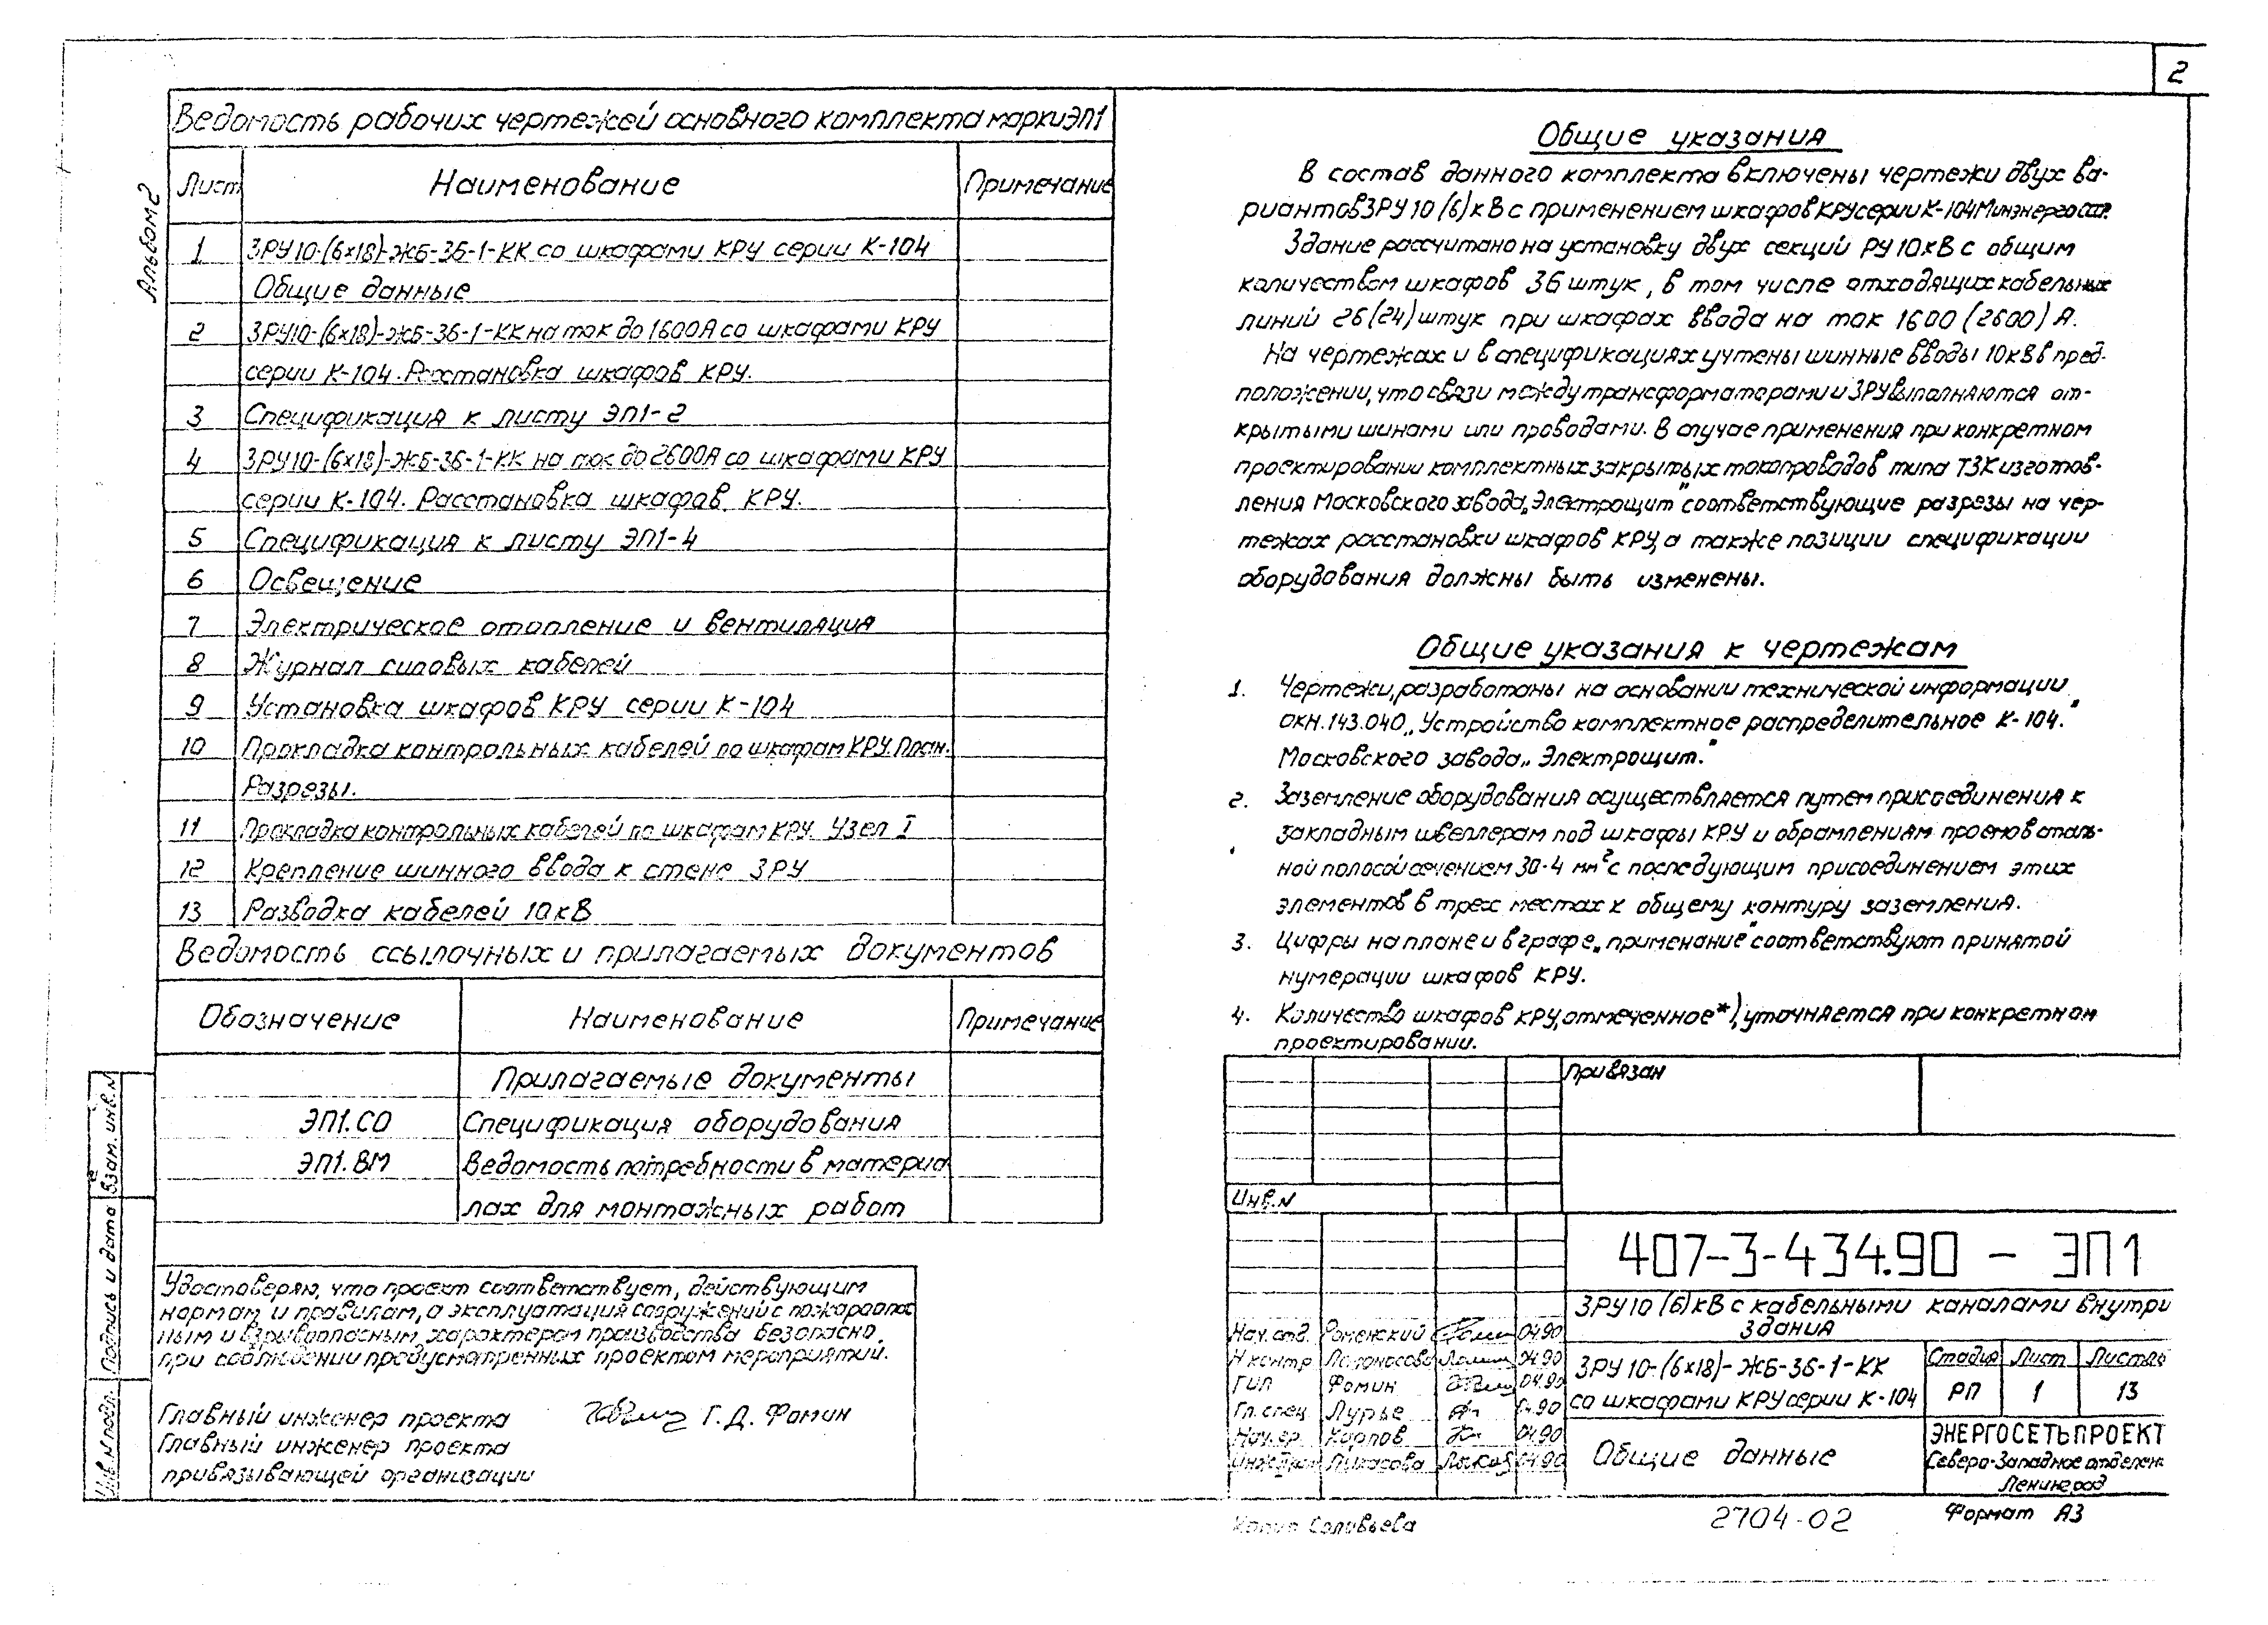 2
Альбом 2
Ведомость рабочих чертежей основного комплекта марки ЭП1
Лист Наименование Примечание
1 ЗРУ10-(6х18)-ЖБ-36-1-КК со шкафами КРУ серии К-104
Общие данные
2 ЗРУ10-(6х18)-ЖБ-36-1-КК на ток до 1600А со шкафами КРУ
серии К-104. Расстановка шкафов КРУ.
3 Спецификация к листу ЭП1-2
4 ЗРУ10-(6х18)-ЖБ-36-1-КК на ток до 2600А со шкафами КРУ
серии К-104. Расстановка шкафов КРУ.
5 Спецификация к листу ЭП1-4
6 Освещение
7 Электрическое отопление и вентиляция
8 Журнал силовых кабелей
9 Установка шкафов КРУ серии К-104
10 Прокладка контрольных кабелей по шкафам КРУ. План.
Разрезы.
11 Прокладка контрольных кабелей по шкафам КРУ. Узел I
12 Крепление шинного ввода к стене ЗРУ
13 Разводка кабелей 10кВ
Ведомость ссылочных и прилагаемых документов
Обозначение Наименование Примечание
Прилагаемые документы
ЭП1.СО Спецификация оборудования
ЭП1.ВМ Ведомость потребности в материа
лах для монтажных работ
Удостоверяю, что проект соответствует, действующим
нормам и правилам, а эксплуатация сооружений с пожароопас
ным и взрывоопасным характером производства безопасно
при соблюдении предусмотренных проектом мероприятий.
Главный инженер проекта Г. Д. Фомин
Главный инженер проекта
привязывающей организации
Взам. инв. N
Подпись и дата
Инв. N подл.
Общие указания
В состав данного комплекта включены чертежи двух ва-
риантов ЗРУ 10 (6) кВ с применением шкафов КРУ серии К-104 Минэнерго СССР.
Здание рассчитано на установку двух секций РУ 10кВ с общим
количеством шкафов 36 штук, в том числе отходящих кабельных
линий 26 (24) штук при шкафах ввода на ток 1600 (2600) А.
На чертежах и в спецификациях учтены шинные вводы 10кВ в пред-
положении, что связи между трансформаторами и ЗРУ выполняются от-
крытыми шинами или проводами. В случае применения при конкретном
проектировании комплектных закрытых токопроводов типа ТЗК изготов-
ления Московского завода „Электрощит" соответствующие разрезы на чер-
тежах расстановки шкафов КРУ, а также позиции спецификации
оборудования должны быть изменены.
Общие указания к чертежам
1. Чертежи, разработаны на основании технической информации
ОКН.143.040 „Устройство комплектное распределительное К-104."
Московского завода „Электрощит."
2. Заземление оборудования осуществляется путем присоединения к
закладным швеллерам под шкафы КРУ и обрамлениям проемов сталь-
ной полосой сечением 30·4 мм² с последующим присоединением этих
элементов в трех местах к общему контуру заземления.
3. Цифры на плане и в графе „примечание" соответствуют принятой
нумерации шкафов КРУ.
4. Количество шкафов КРУ, отмеченное *), уточняется при конкретном
проектировании.
Привязан
Инв. N
407-3-434.90 - ЭП1
ЗРУ 10 (6) кВ с кабельными каналами внутри
здания
Нач. отд. Роменский 04.90
Н контр Ломоносова 04.90
ГИП Фомин 04.90
Гл. спец. Лурье 04.90
Нач. гр. Карпов 04.90
04.90
ЗРУ 10-(6х18)-ЖБ-36-1-КК
со шкафами КРУ серии К-104
Стадия Лист Листов
РП 1 13
Общие данные
ЭНЕРГОСЕТЬПРОЕКТ
Северо-Западное отделен.
Ленинград
Копир Соловьева
2704-02
Формат А3